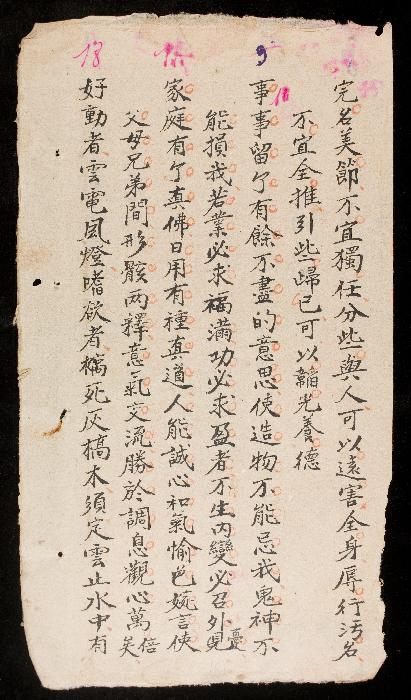 完名美節不宜獨任分些與人可以遠害全身辱行污名
不宜全推引些歸己可以韜光養德
9
10
事事留个有餘不盡的意思使造物不能忌我鬼神不
能損我若業必求福滿功必求盈者不生內變必召外憂
家庭有个真佛日用有種真道人能誠心和氣愉色婉言使
父母兄弟間形骸两釋意氣交流勝於調息觀心萬倍矣
18
好動者雲電風燈嗜欲者槁死灰槁木須定雲止水中有